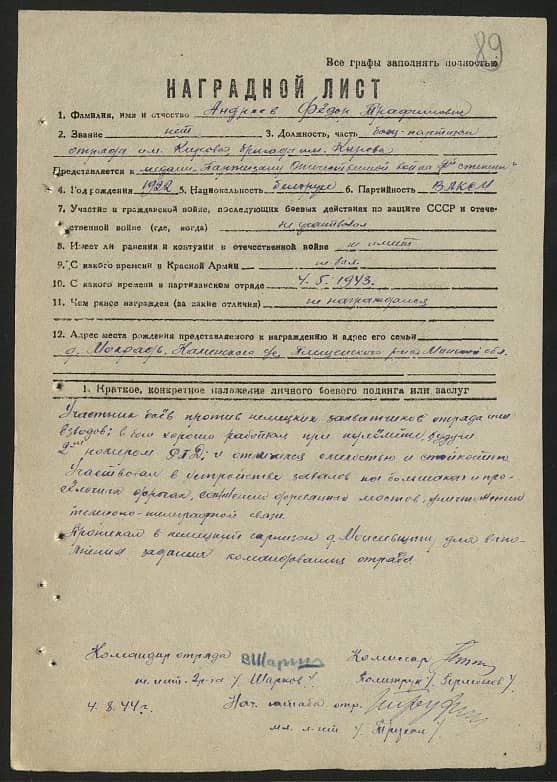 89
Все графы заполнять полностью
НАГРАДНОЙ ЛИСТ
1. Фамилия, имя и отчество Андреев Фёдор Трафимович
2. Звание нет 3. Должность, часть боец-партизан
отряда им. Кирова бригада им. Кирова
Представляется к медали Партизану Отечественной войны степени"
4. Год рождения 1922 5. Национальность белорус 6. Партийность ВЛКСМ
7. Участие в гражданской войне, последующих боевых действиях по защите СССР и отече-
ственной войне (где, когда) не участвовал
8. Имеет ли ранения и контузии в отечественной войне не имеет
9. С какого времени в Красной Армии не был
10. С какого времени в партизанском отряде 4.5.1943.
11. Чем ранее награжден (за какие отличия) не награждался
12. Адрес места рождения представляемого к награждению и адрес его семьи
д. с/с, Плещенского р-на Минской обл.
1. Краткое, конкретное изложение личного боевого подвига или заслуг
Участник боёв против немецких захватчиков отряда или
взводов; в бою хорошо работал при пулемёте, будучи
2ым номером и отличился смелостью и стойкостью
Участвовал в устройстве завалов на больших и про-
дорогах, сожжении мостов, уничтожении
телефоно-телеграфной связи.
Проникал в немецкий гарнизон д. для выпо-
лнения задания командования отряда
Командир отряда ВШарков Комиссар
2-го /Шарков/ Политрук /
4.8.44 г. Нач. штаба отр.
мл. л-нт /